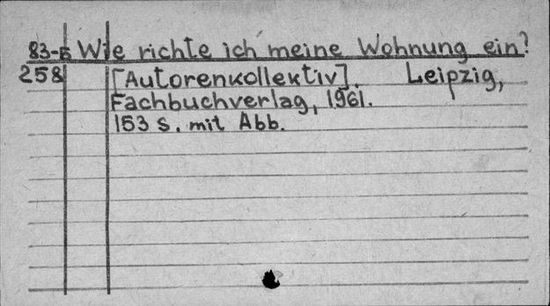 83-5 Wie richte ich meine Wohnung ein?
258 [Autorenkollektiv]. Leipzig,
Fachbuchverlag, 1961.
153 s. mit Abb.